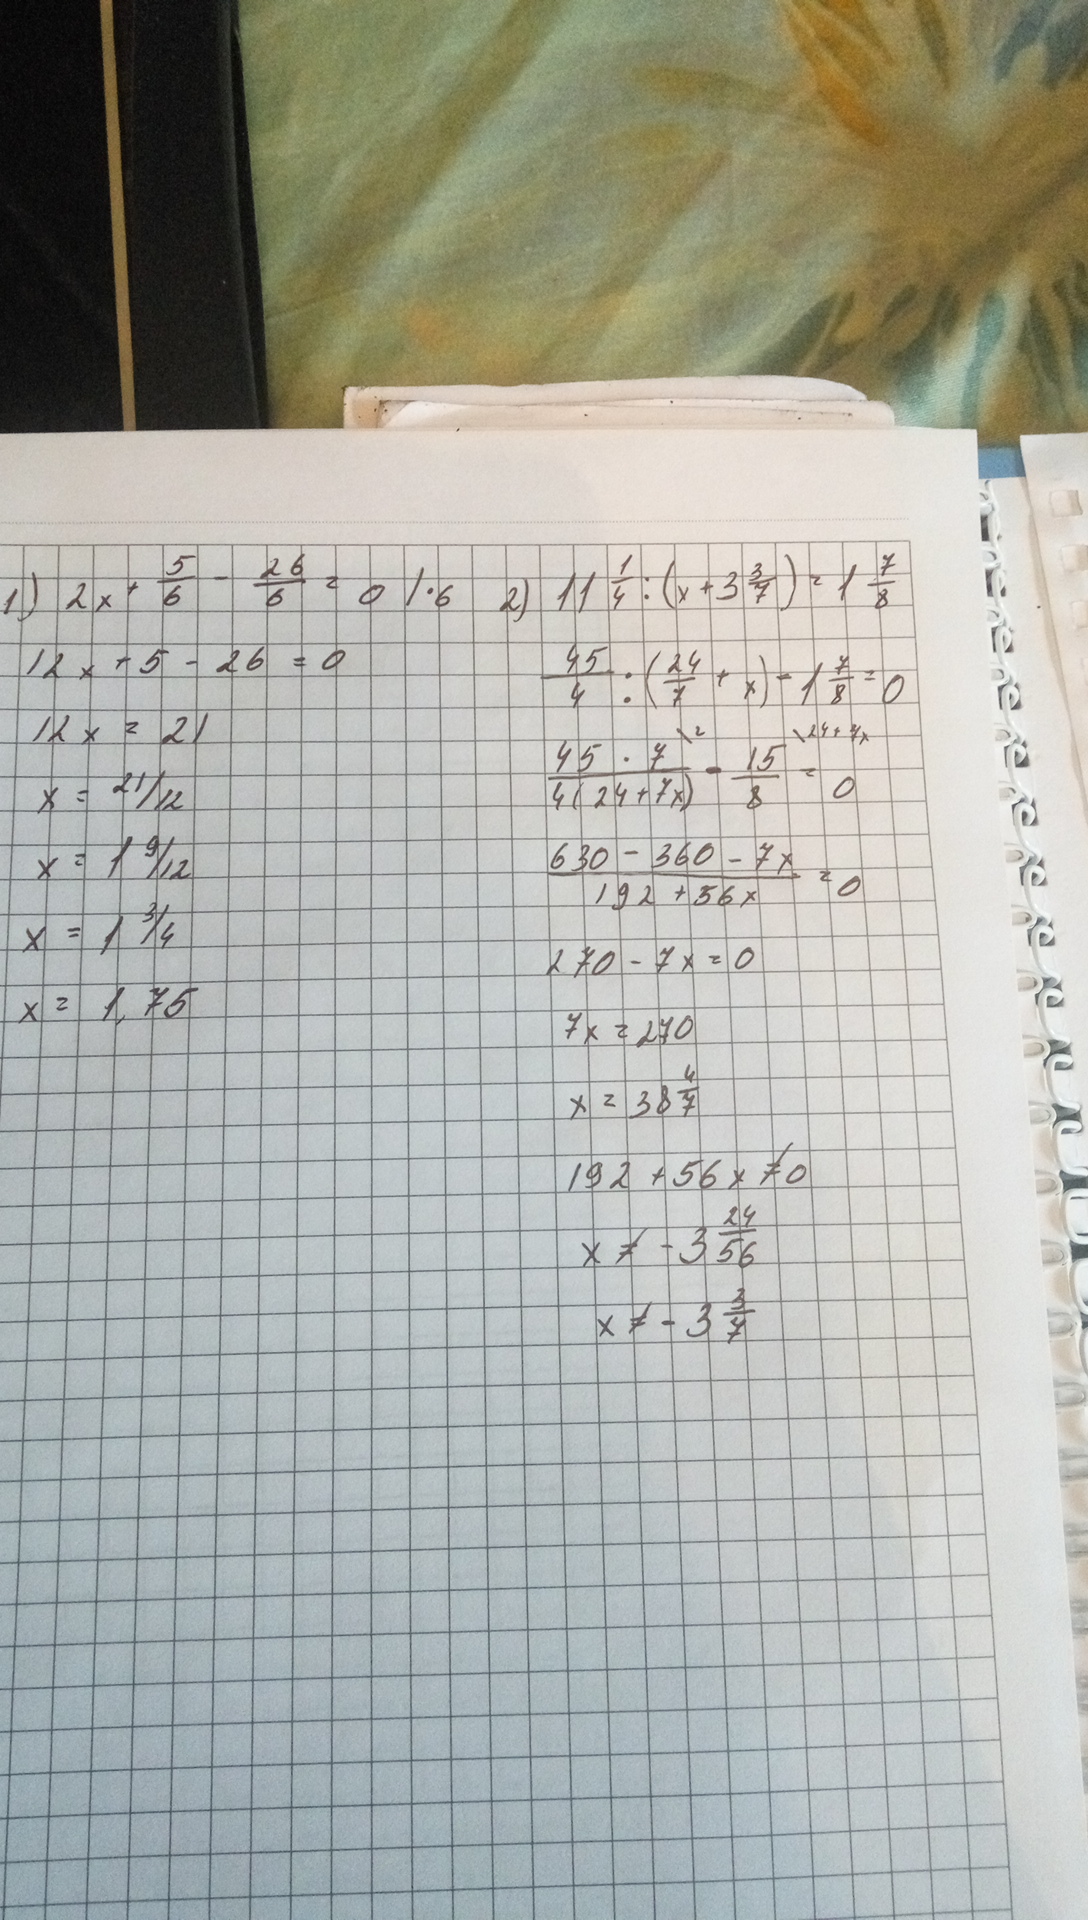 1) 2x + 5/6 - 26/6 = 0 | · 6
12x + 5 - 26 = 0
12x = 21
x = 21/12
x = 1 9/12
x = 1 3/4
x = 1,75
2) 11 1/4 : (x + 3 3/7) = 1 7/8
45/4 : (24/7 + x) - 1 7/8 = 0
45 · 7/4(24 + 7x) \2 - 15/8 \24 + 7x = 0
630 - 360 - 7x/192 + 56x = 0
270 - 7x = 0
7x = 270
x = 38 4/7
192 + 56x ≠ 0
x ≠ - 3 24/56
x ≠ - 3 3/7